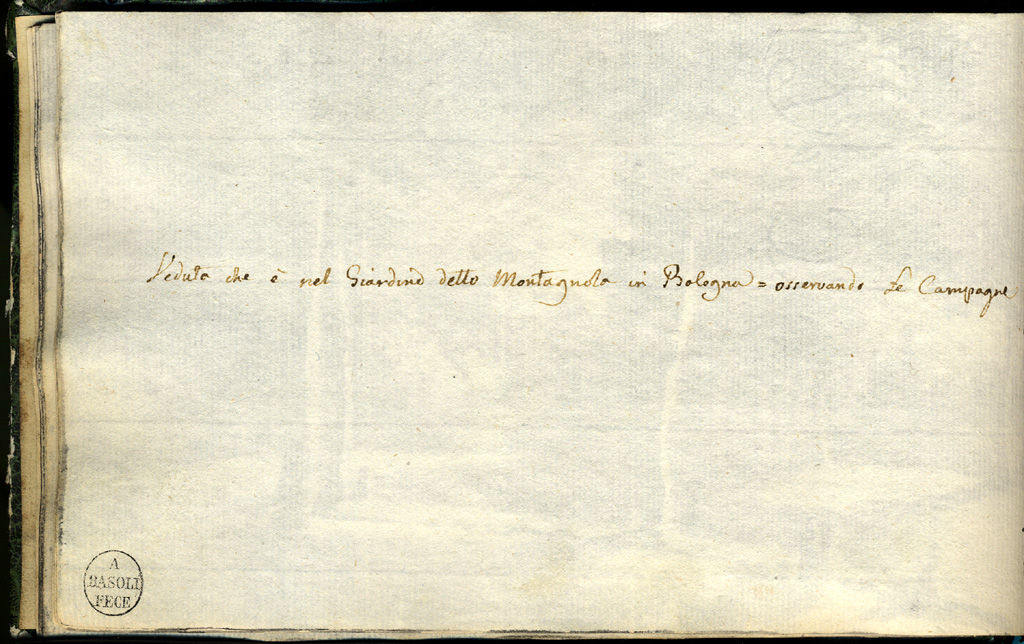 Veduta che è nel Giardino della Montagnola in Bologna = osservando Le Campagne
A
BASOLI
FECE